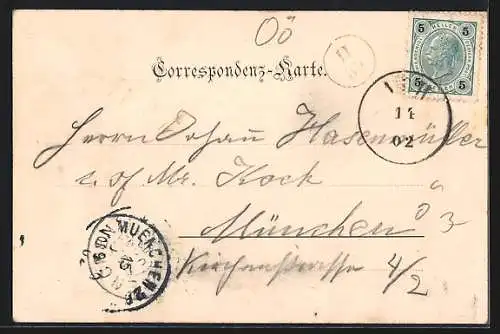 OÖ
5 HELLER 5
5 5
II
Correspondenz-Karte.
14
02
Herrn Johann Hasenmüller
c. of Mr. Kock
München
Kirchenstrasse 4/2
MUENCHEN